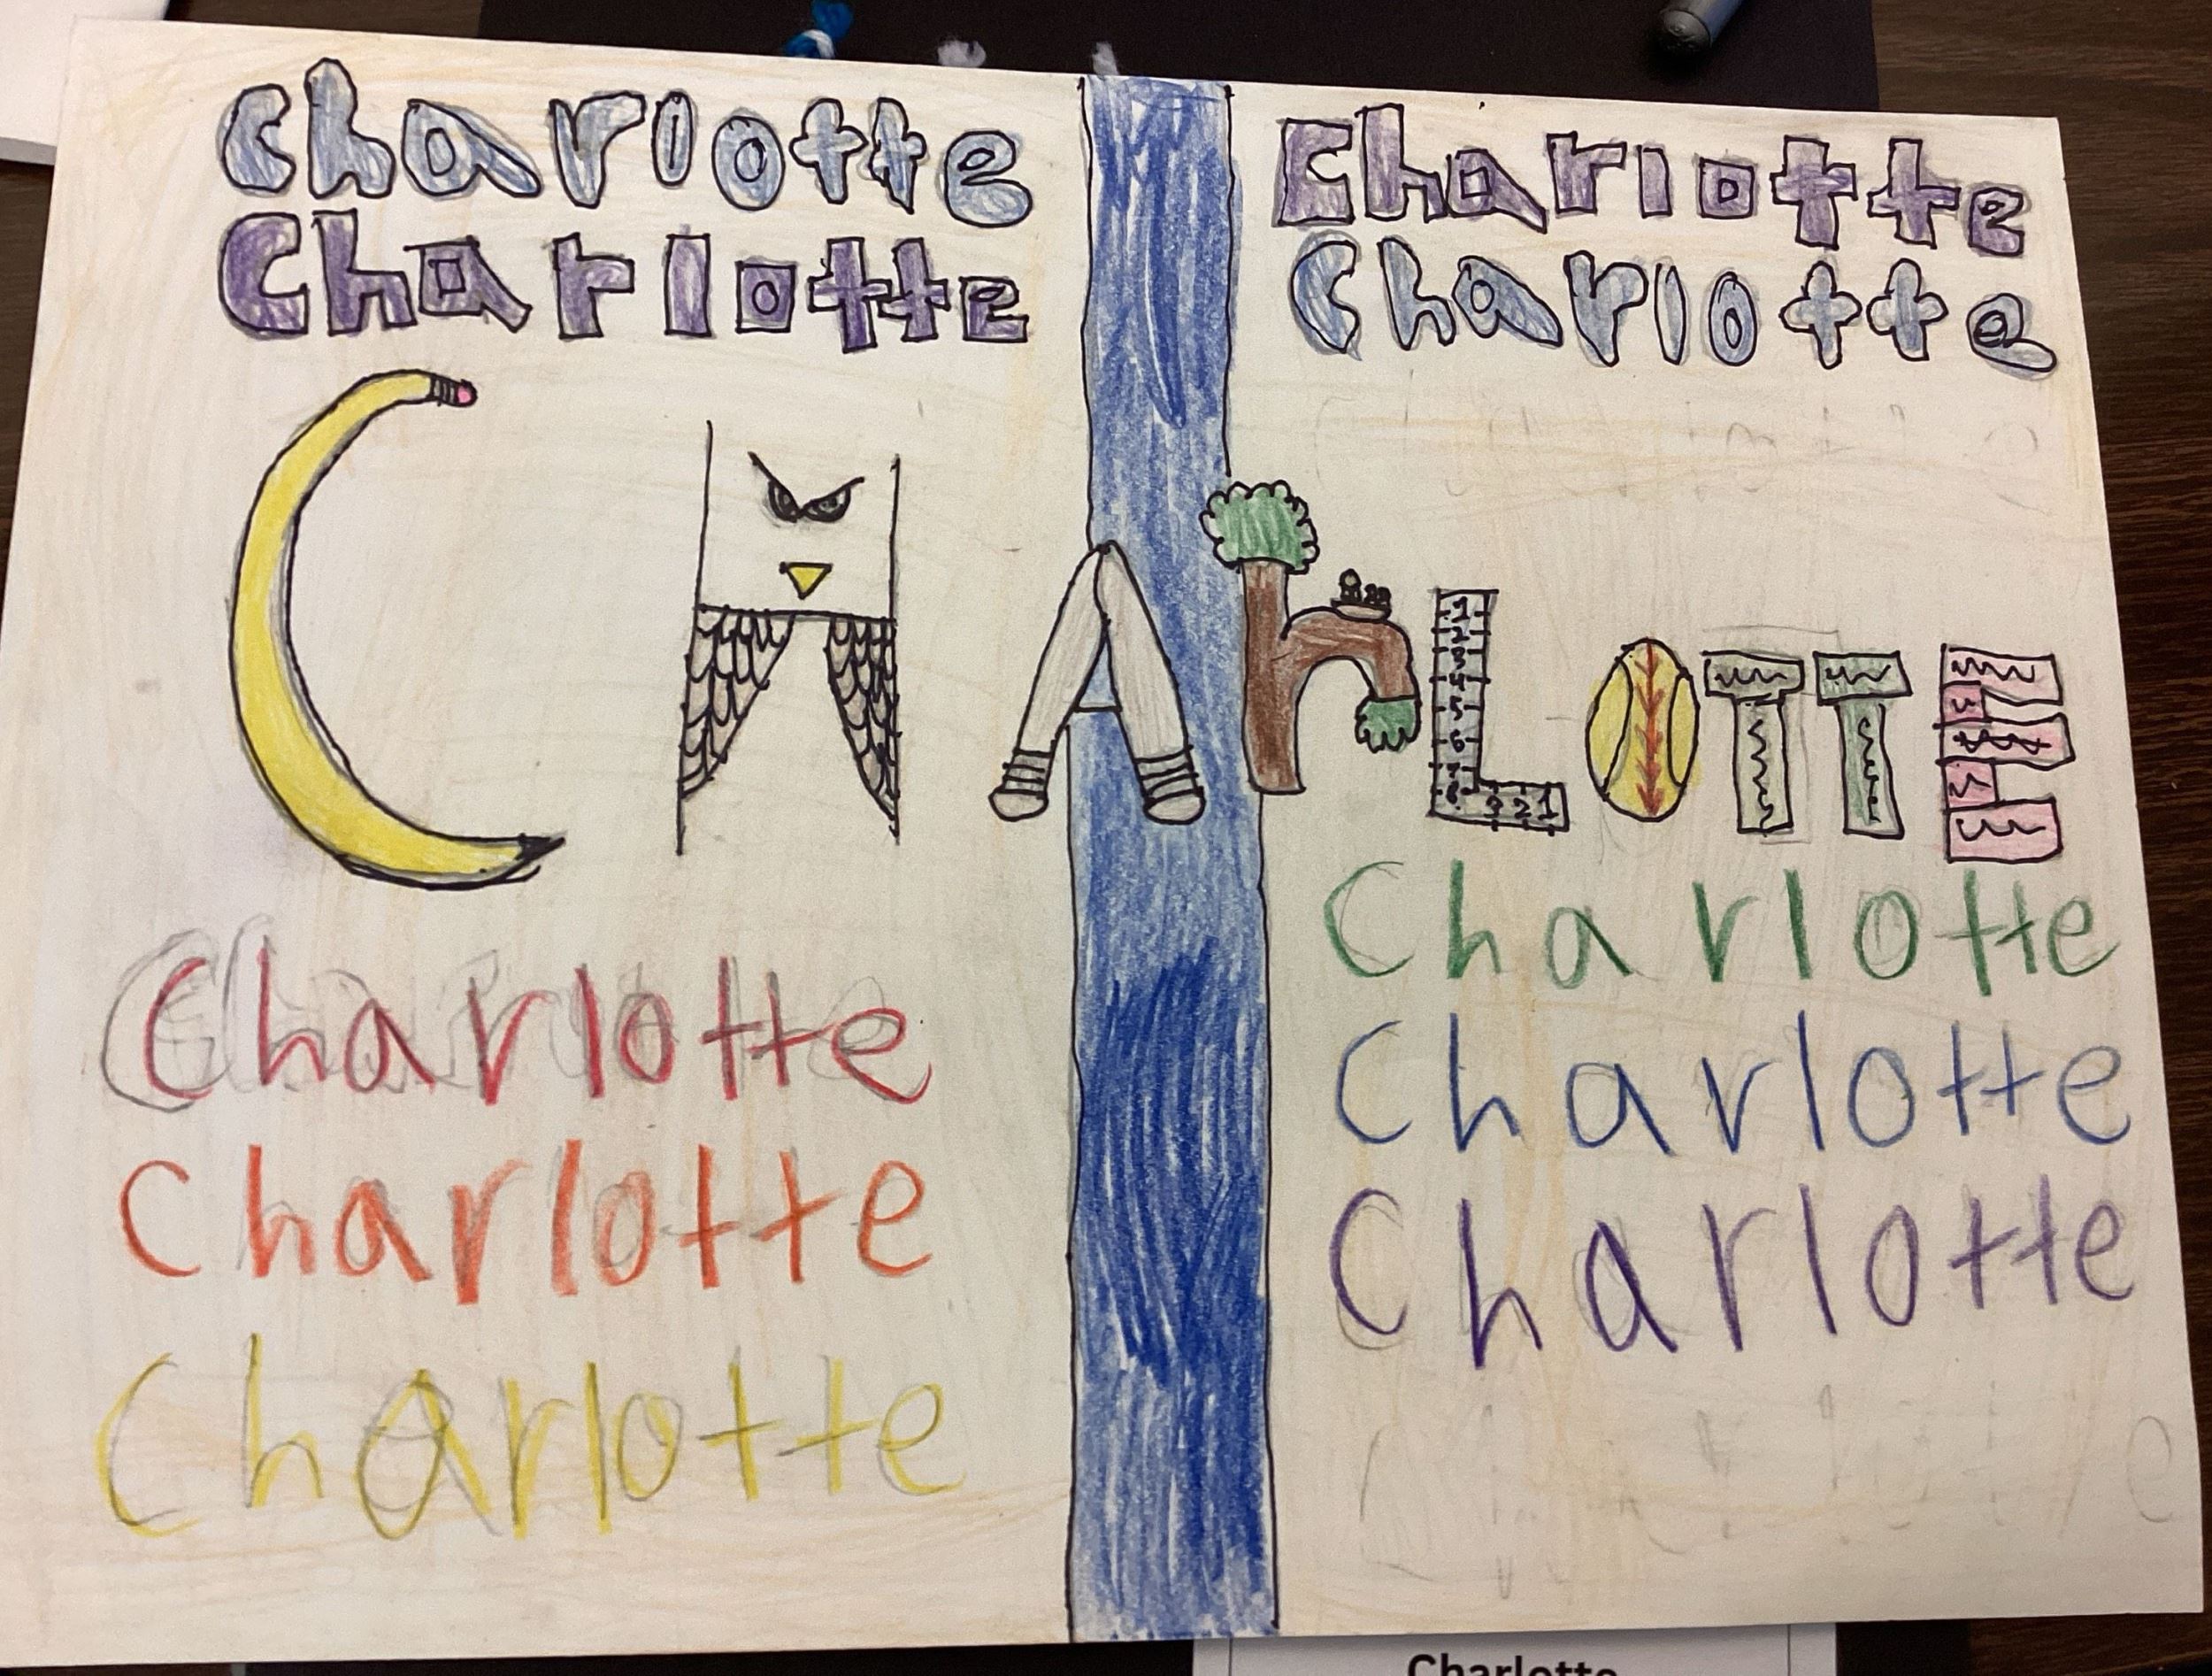 Charlotte
Charlotte
Charlotte
Charlotte
CHArLOTTE
1
2
3
4
5
6
7
8
3 2 1
Charlotte
Charlotte
Charlotte
Charlotte
Charlotte
Charlotte
Charlotte